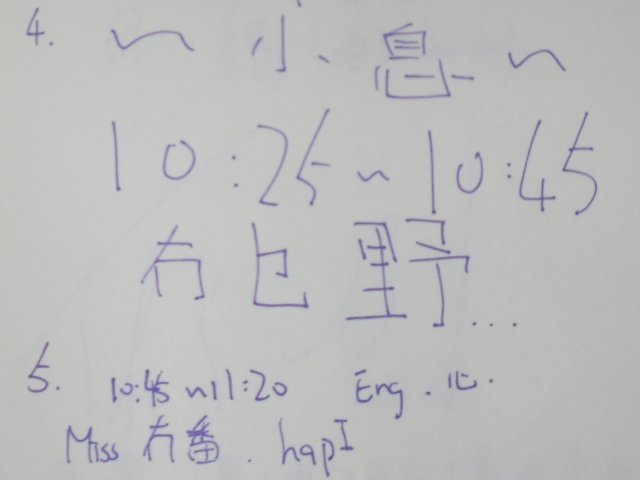 4. ~ 小息 ~
10:25~10:45
冇乜野...
5. 10:45~11:20 Eng.
Miss 冇番. hap